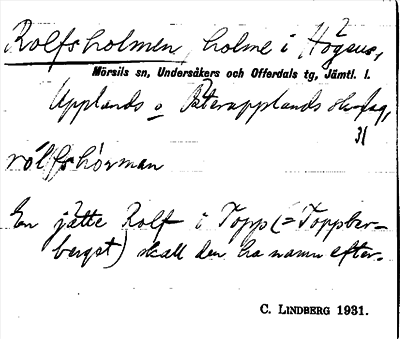 Rolfsholmen, holme i Högsus,
Mörsils sn, Undersåkers och Offerdals tg, Jämtl. l.
Upplands o
31
rólfshòrman
En jätte Rolf i Topp (= Toppber-
berget) skall den ha namn efter.
C. LINDBERG 1931.